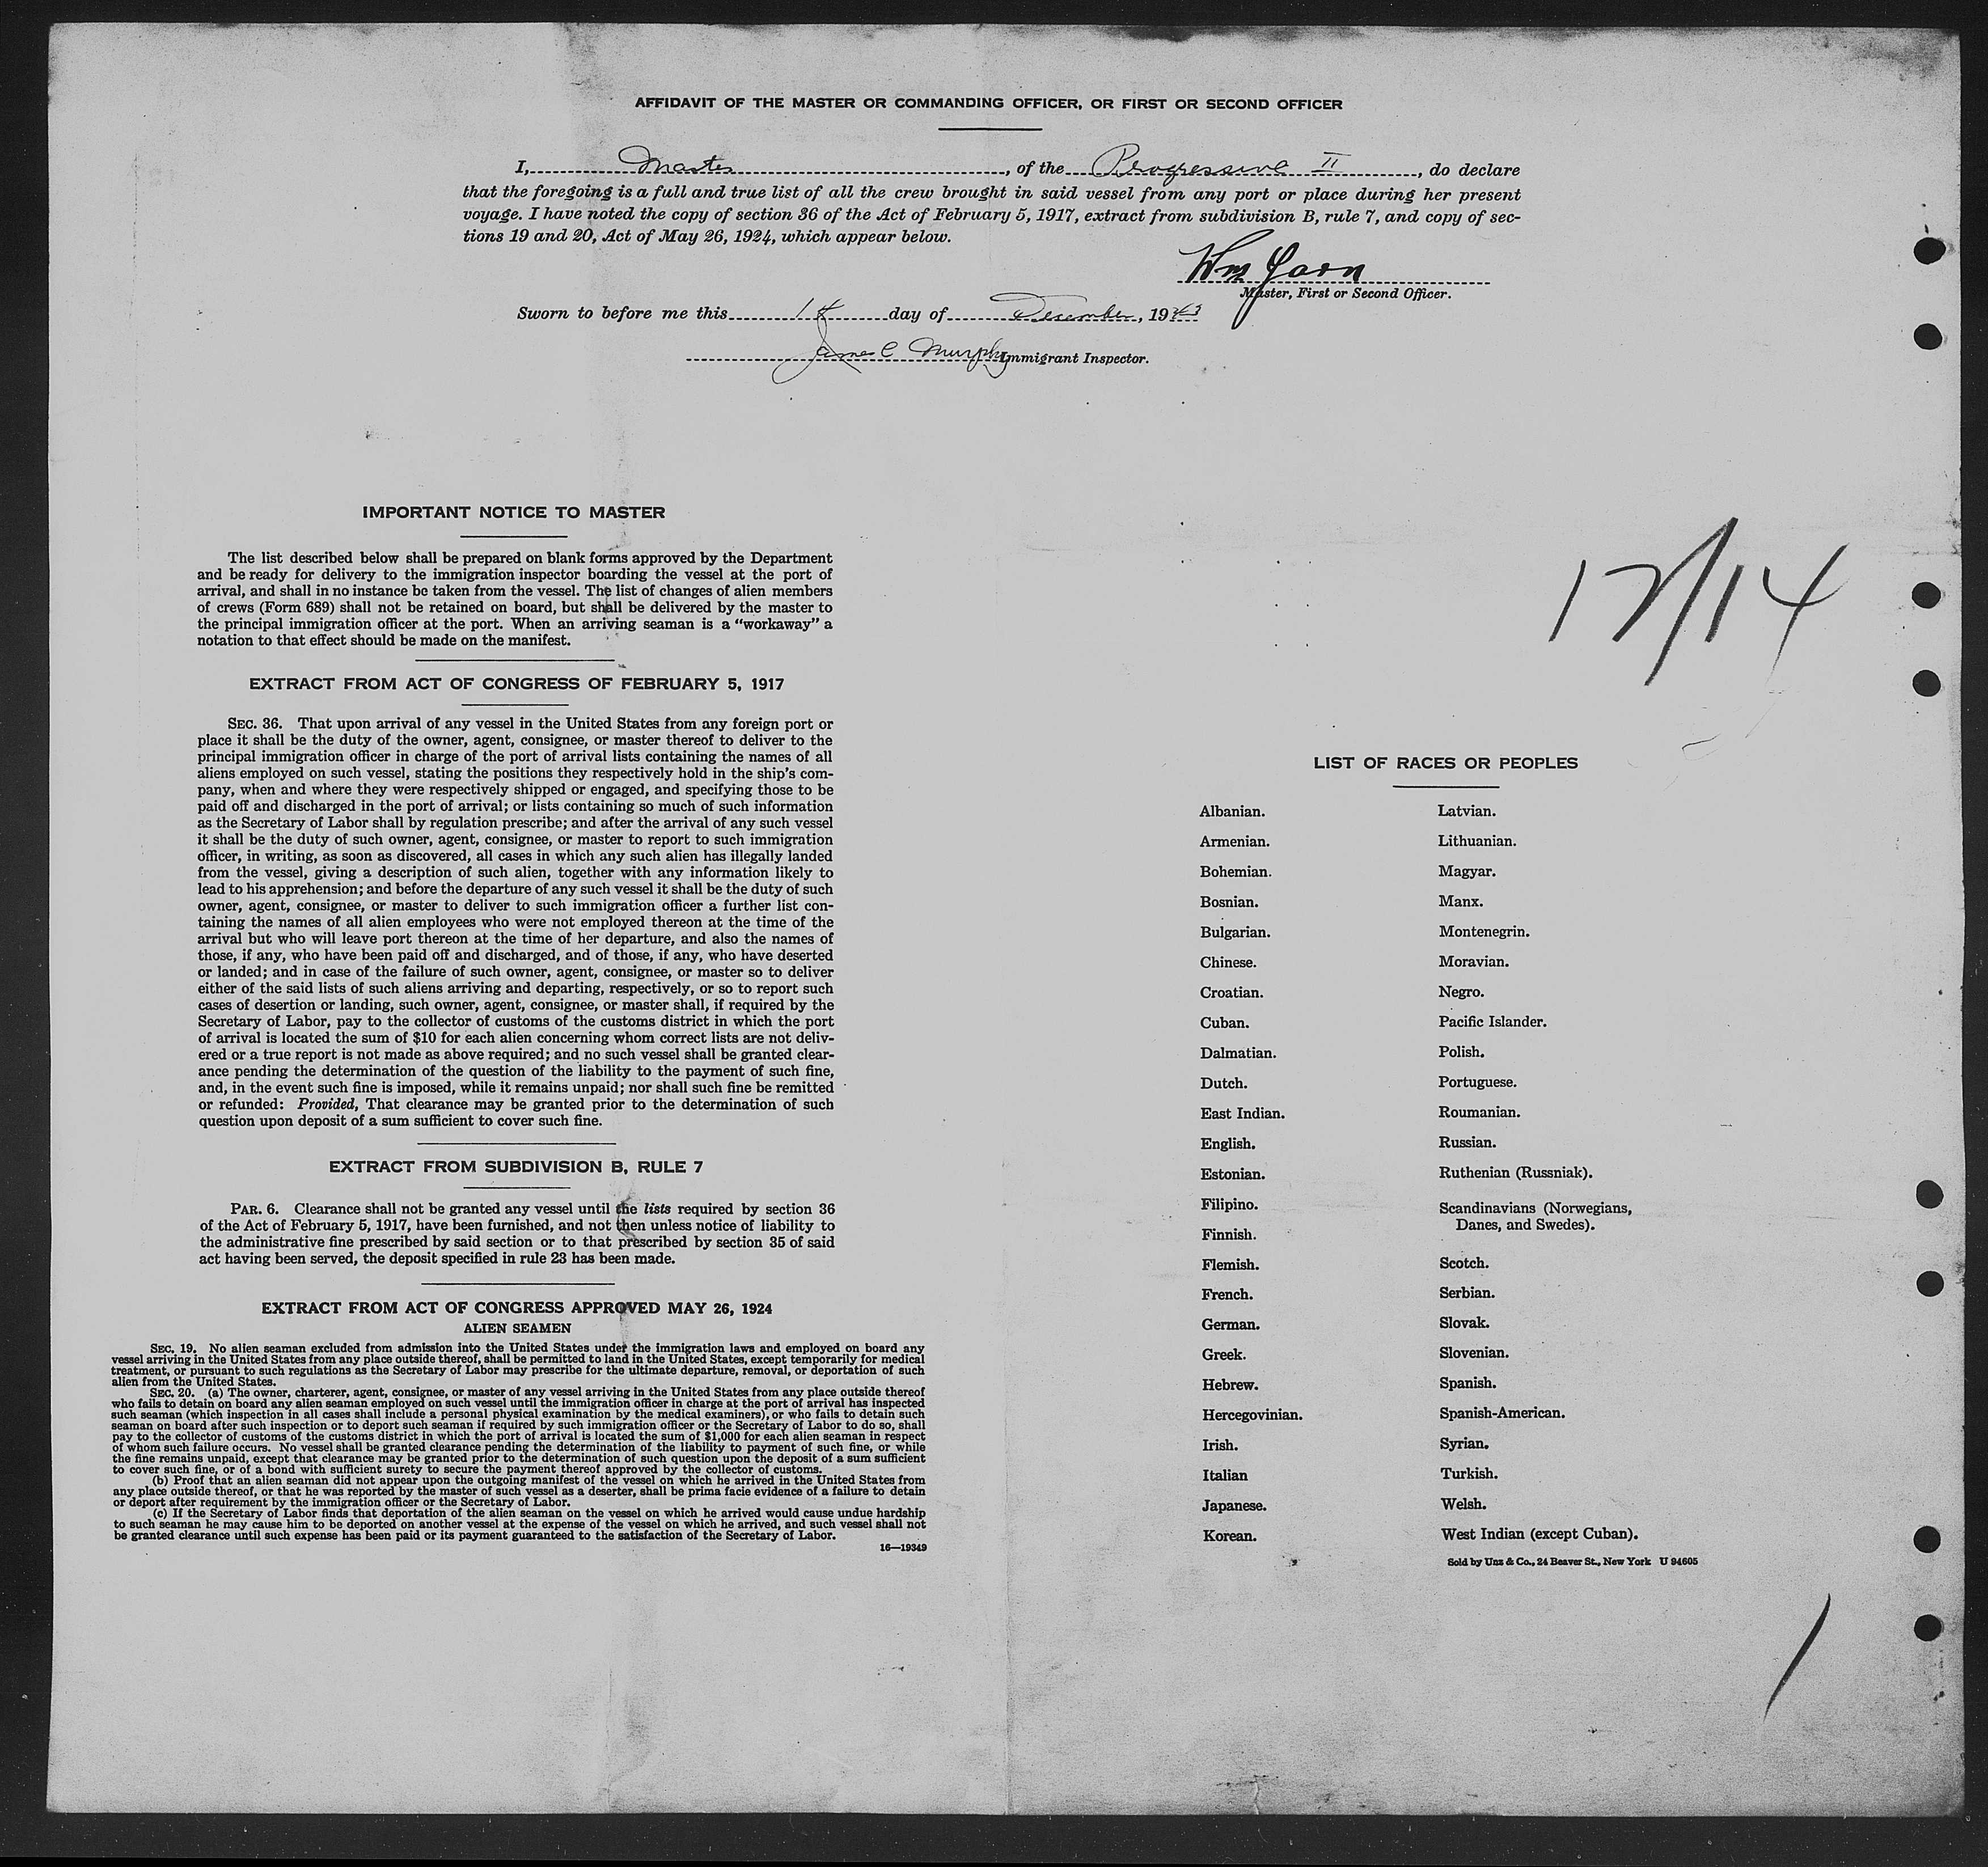 AFFIDAVIT OF THE MASTER OR COMMANDING OFFICER, OR FIRST OR SECOND OFFICER
I, Master, of the Progressive II, do declare
that the foregoing is a full and true list of all the crew brought in said vessel from any port or place during her present
voyage. I have noted the copy of section 36 of the Act of February 5, 1917, extract from subdivision B, rule 7, and copy of sec-
tions 19 and 20, Act of May 26, 1924, which appear below.
Wm
Master, First or Second Officer.
Sworn to before me this 14 day of December, 1943
James C Murphy Immigrant Inspector.
IMPORTANT NOTICE TO MASTER
The list described below shall be prepared on blank forms approved by the Department
and be ready for delivery to the immigration inspector boarding the vessel at the port of
arrival, and shall in no instance be taken from the vessel. The list of changes of alien members
of crews (Form 689) shall not be retained on board, but shall be delivered by the master to
the principal immigration officer at the port. When an arriving seaman is a "workaway" a
notation to that effect should be made on the manifest.
EXTRACT FROM ACT OF CONGRESS OF FEBRUARY 5, 1917
SEC. 36. That upon arrival of any vessel in the United States from any foreign port or
place it shall be the duty of the owner, agent, consignee, or master thereof to deliver to the
principal immigration officer in charge of the port of arrival lists containing the names of all
aliens employed on such vessel, stating the positions they respectively hold in the ship's com-
pany, when and where they were respectively shipped or engaged, and specifying those to be
paid off and discharged in the port of arrival; or lists containing so much of such information
as the Secretary of Labor shall by regulation prescribe; and after the arrival of any such vessel
it shall be the duty of such owner, agent, consignee, or master to report to such immigration
officer, in writing, as soon as discovered, all cases in which any such alien has illegally landed
from the vessel, giving a description of such alien, together with any information likely to
lead to his apprehension; and before the departure of any such vessel it shall be the duty of such
owner, agent, consignee, or master to deliver to such immigration officer a further list con-
taining the names of all alien employees who were not employed thereon at the time of the
arrival but who will leave port thereon at the time of her departure, and also the names of
those, if any, who have been paid off and discharged, and of those, if any, who have deserted
or landed; and in case of the failure of such owner, agent, consignee, or master so to deliver
either of the said lists of such aliens arriving and departing, respectively, or so to report such
cases of desertion or landing, such owner, agent, consignee, or master shall, if required by the
Secretary of Labor, pay to the collector of customs of the customs district in which the port
of arrival is located the sum of $10 for each alien concerning whom correct lists are not deliv-
ered or a true report is not made as above required; and no such vessel shall be granted clear-
ance pending the determination of the question of the liability to the payment of such fine,
and, in the event such fine is imposed, while it remains unpaid; nor shall such fine be remitted
or refunded: Provided, That clearance may be granted prior to the determination of such
question upon deposit of a sum sufficient to cover such fine.
EXTRACT FROM SUBDIVISION B, RULE 7
PAR. 6. Clearance shall not be granted any vessel until the lists required by section 36
of the Act of February 5, 1917, have been furnished, and not then unless notice of liability to
the administrative fine prescribed by said section or to that prescribed by section 35 of said
act having been served, the deposit specified in rule 23 has been made.
EXTRACT FROM ACT OF CONGRESS APPROVED MAY 26, 1924
ALIEN SEAMEN
SEC. 19. No alien seaman excluded from admission into the United States under the immigration laws and employed on board any
vessel arriving in the United States from any place outside thereof, shall be permitted to land in the United States, except temporarily for medical
treatment, or pursuant to such regulations as the Secretary of Labor may prescribe for the ultimate departure, removal, or deportation of such
alien from the United States.
SEC. 20. (a) The owner, charterer, agent, consignee, or master of any vessel arriving in the United States from any place outside thereof
who fails to detain on board any alien seaman employed on such vessel until the immigration officer in charge at the port of arrival has inspected
such seaman (which inspection in all cases shall include a personal physical examination by the medical examiners), or who fails to detain such
seaman on board after such inspection or to deport such seaman if required by such immigration officer or the Secretary of Labor to do so, shall
pay to the collector of customs of the customs district in which the port of arrival is located the sum of $1,000 for each alien seaman in respect
of whom such failure occurs. No vessel shall be granted clearance pending the determination of the liability to payment of such fine, or while
the fine remains unpaid, except that clearance may be granted prior to the determination of such question upon the deposit of a sum sufficient
to cover such fine, or of a bond with sufficient surety to secure the payment thereof approved by the collector of customs.
(b) Proof that an alien seaman did not appear upon the outgoing manifest of the vessel on which he arrived in the United States from
any place outside thereof, or that he was reported by the master of such vessel as a deserter, shall be prima facie evidence of a failure to detain
or deport after requirement by the immigration officer or the Secretary of Labor.
(c) If the Secretary of Labor finds that deportation of the alien seaman on the vessel on which he arrived would cause undue hardship
to such seaman he may cause him to be deported on another vessel at the expense of the vessel on which he arrived, and such vessel shall not
be granted clearance until such expense has been paid or its payment guaranteed to the satisfaction of the Secretary of Labor.
16—19349
12/14
LIST OF RACES OR PEOPLES
Albanian.
Armenian.
Bohemian.
Bosnian.
Bulgarian.
Chinese.
Croatian.
Cuban.
Dalmatian.
Dutch.
East Indian.
English.
Estonian.
Filipino.
Finnish.
Flemish.
French.
German.
Greek.
Hebrew.
Hercegovinian.
Irish.
Italian
Japanese.
Korean.
Latvian.
Lithuanian.
Magyar.
Manx.
Montenegrin.
Moravian.
Negro.
Pacific Islander.
Polish.
Portuguese.
Roumanian.
Russian.
Ruthenian (Russniak).
Scandinavians (Norwegians,
Danes, and Swedes).
Scotch.
Serbian.
Slovak.
Slovenian.
Spanish.
Spanish-American.
Syrian.
Turkish.
Welsh.
West Indian (except Cuban).
Sold by Unz & Co., 24 Beaver St., New York U 94605
1